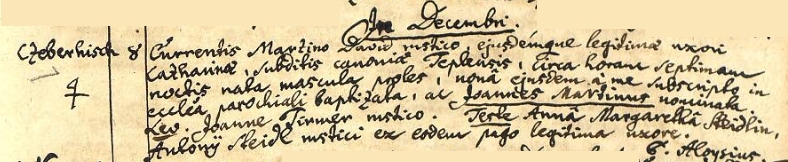 In Decembri.
Czeberhisch 8 Currentis Martino David rustico ejusdémque legitimæ uxori
Catharinæ, subditis canoniæ Teplensis, circa horam septimam
noctis nata mascula proles, nonâ ejusdem à me subscripto in
4 eccľea parochiali baptizata, ac Joannes Martinus nominata.
Lev. Joanne Tirmer rustico. Teste Annâ Margarethâ Steidlin,
Antonij Steidl rustici ex eodem pago legitima uxore.
P. Aloysius